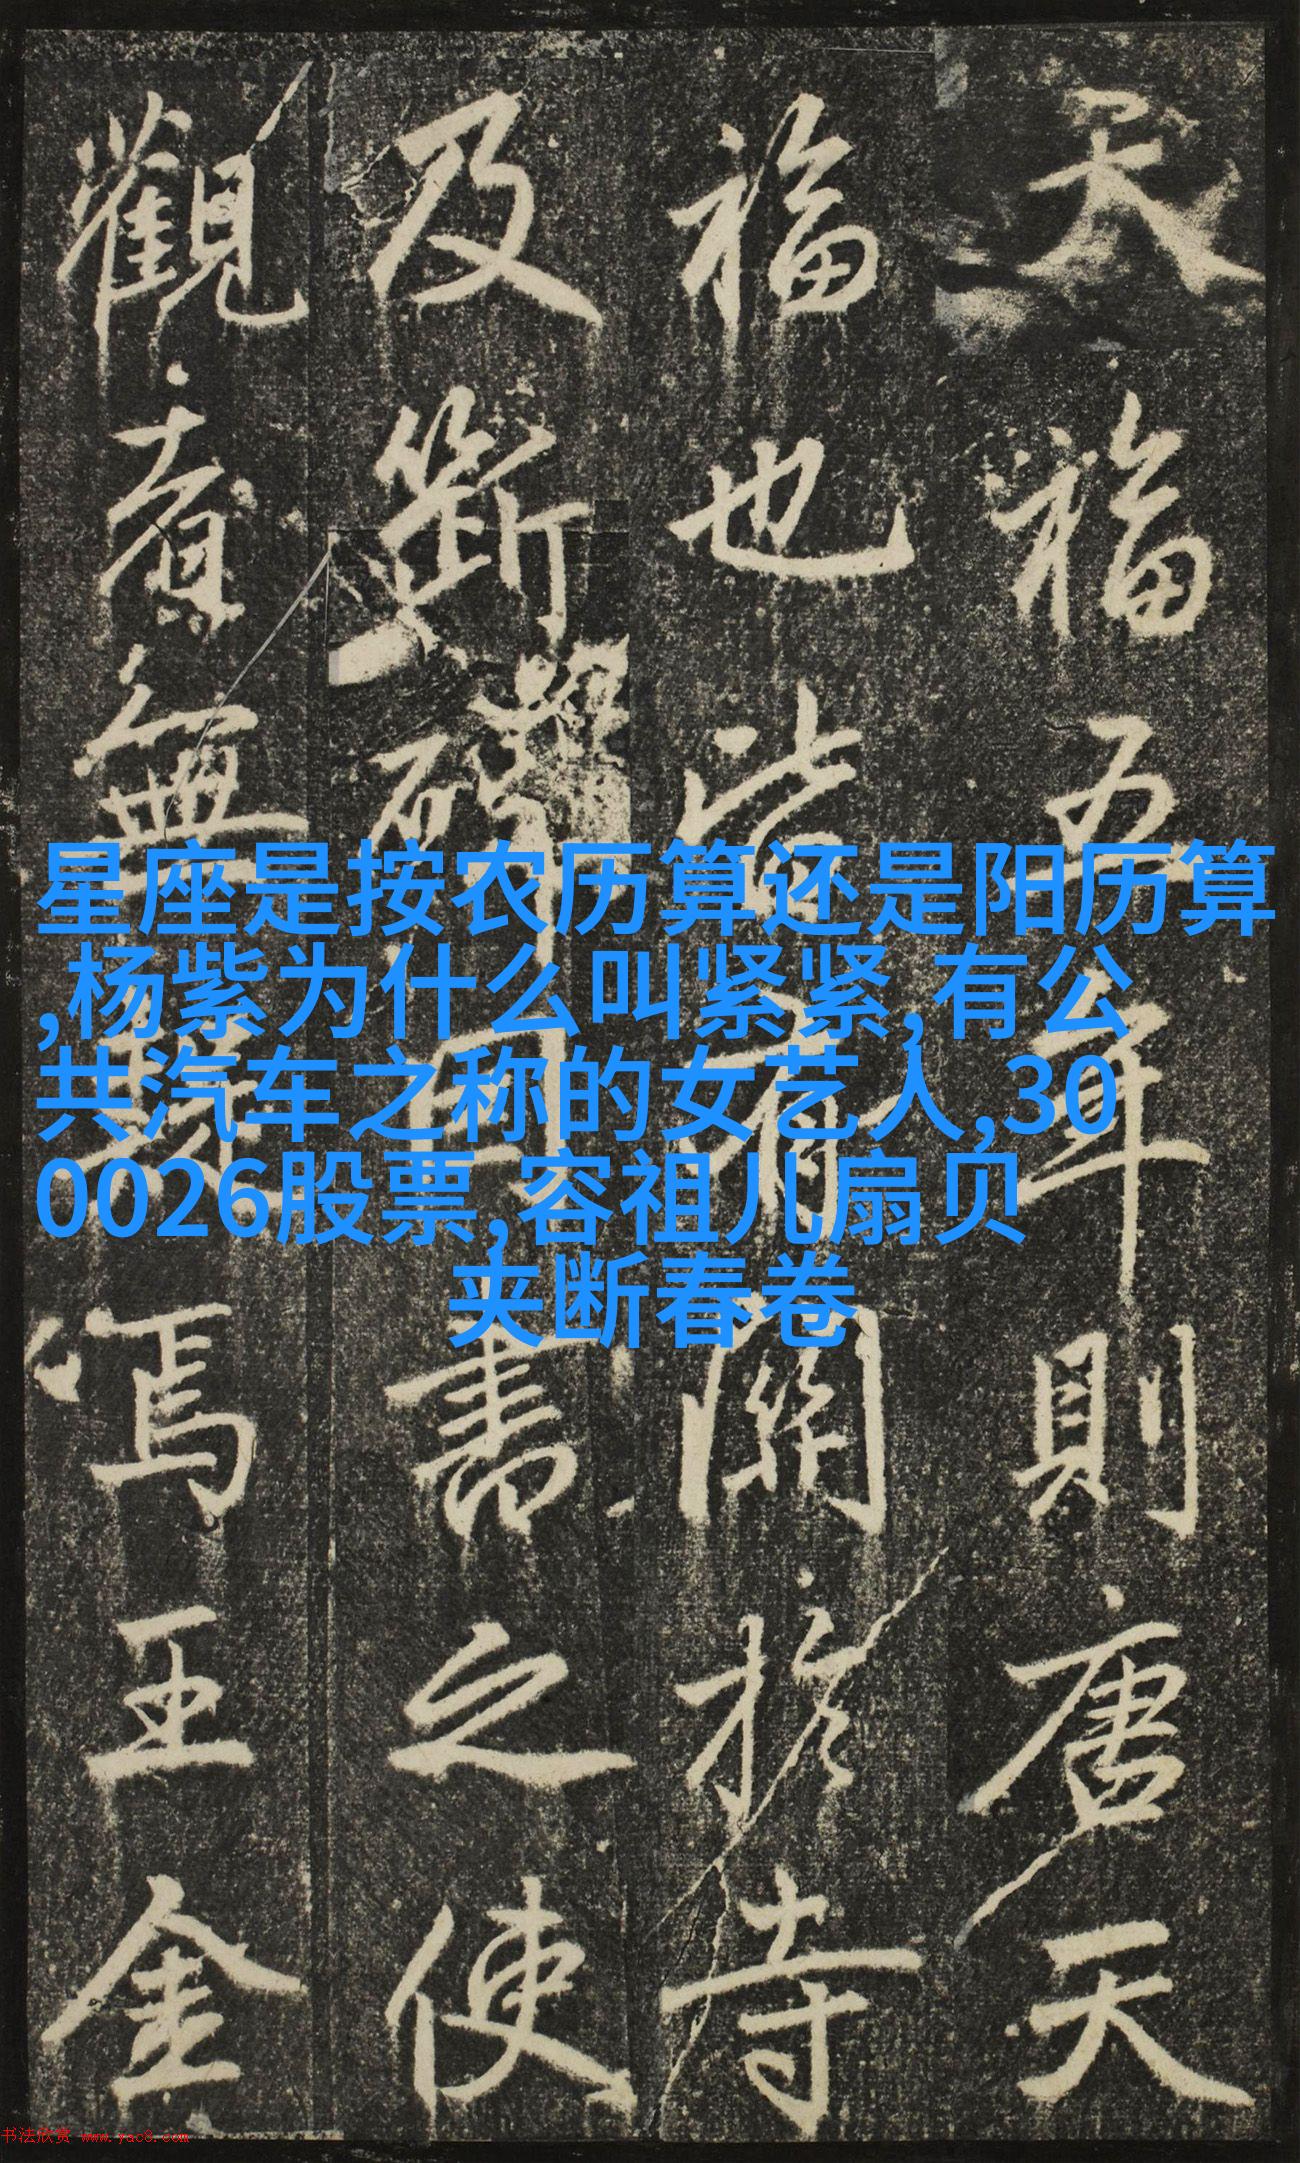 天福五年則唐天
福也皆有關於寺
及斷碑書之使
觀音無焉王金
星座是按农历算还是阳历算
,杨紫为什么叫紧紧,有公
共汽车之称的女艺人,30
0026股票,容祖儿扇贝
夹断春卷
书法欣赏 www.yac8.com